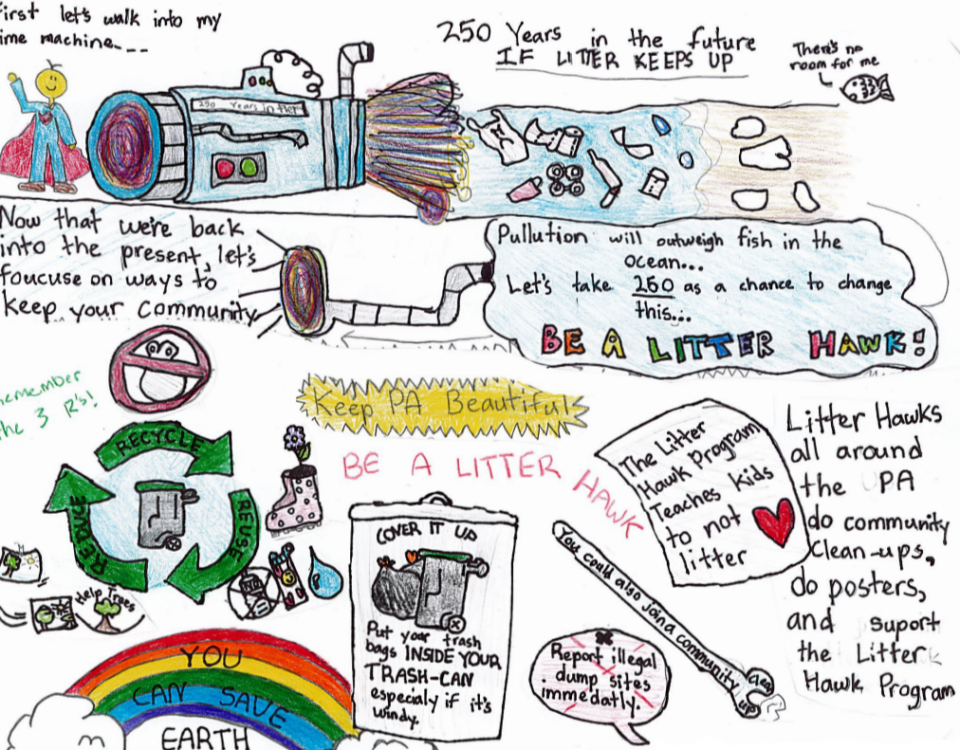 First let's walk into my
time machine....
250 Years in the future
IF LITTER KEEPS UP
There's no
room for me
250 Years in the
Now that we're back
into the present, let's
foucuse on ways to
keep your community
Pullution will outweigh fish in the
ocean...
Let's take 250 as a chance to change
this...
BE A LITTER HAWK!
Remember
the 3 R's!
RECYCLE
REUSE
REDUCE
Help Trees
Keep PA Beautiful
BE A LITTER HAWK
COVER IT UP
Put your trash
bags INSIDE YOUR
TRASH-CAN
especialy if it's
windy.
The Litter
Hawk Program
Teaches kids
to not
litter
You could also join a community clean up
Report illegal
dump sites
immedatly.
Litter Hawks
all around
the PA
do community
Clean-ups,
do posters,
and suport
the Litter
Hawk Program
YOU
CAN SAVE
EARTH